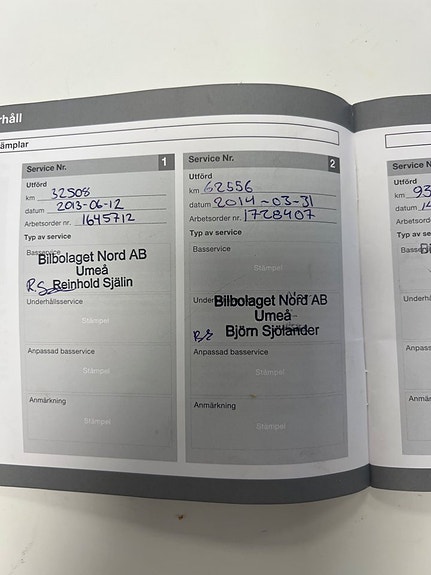 rhåll
ämplar
Service Nr. 1
Utförd
km 32508
datum 2013-06-12
Arbetsorder nr. 1645712
Typ av service
Basservice
Bilbolaget Nord AB
Umeå
Reinhold Själin
Underhållsservice
Stämpel
Anpassad basservice
Stämpel
Anmärkning
Stämpel
Service Nr. 2
Utförd
km 62556
datum 2014-03-31
Arbetsorder nr. 1728407
Typ av service
Basservice
Stämpel
Bilbolaget Nord AB
Umeå
Björn Sjölander
Anpassad basservice
Stämpel
Anmärkning
Stämpel
Service N
Utförd
km 93
datum 14
Arbetsord
Typ av se
Basservic
Underhåll
Anpassad
Anmärkni